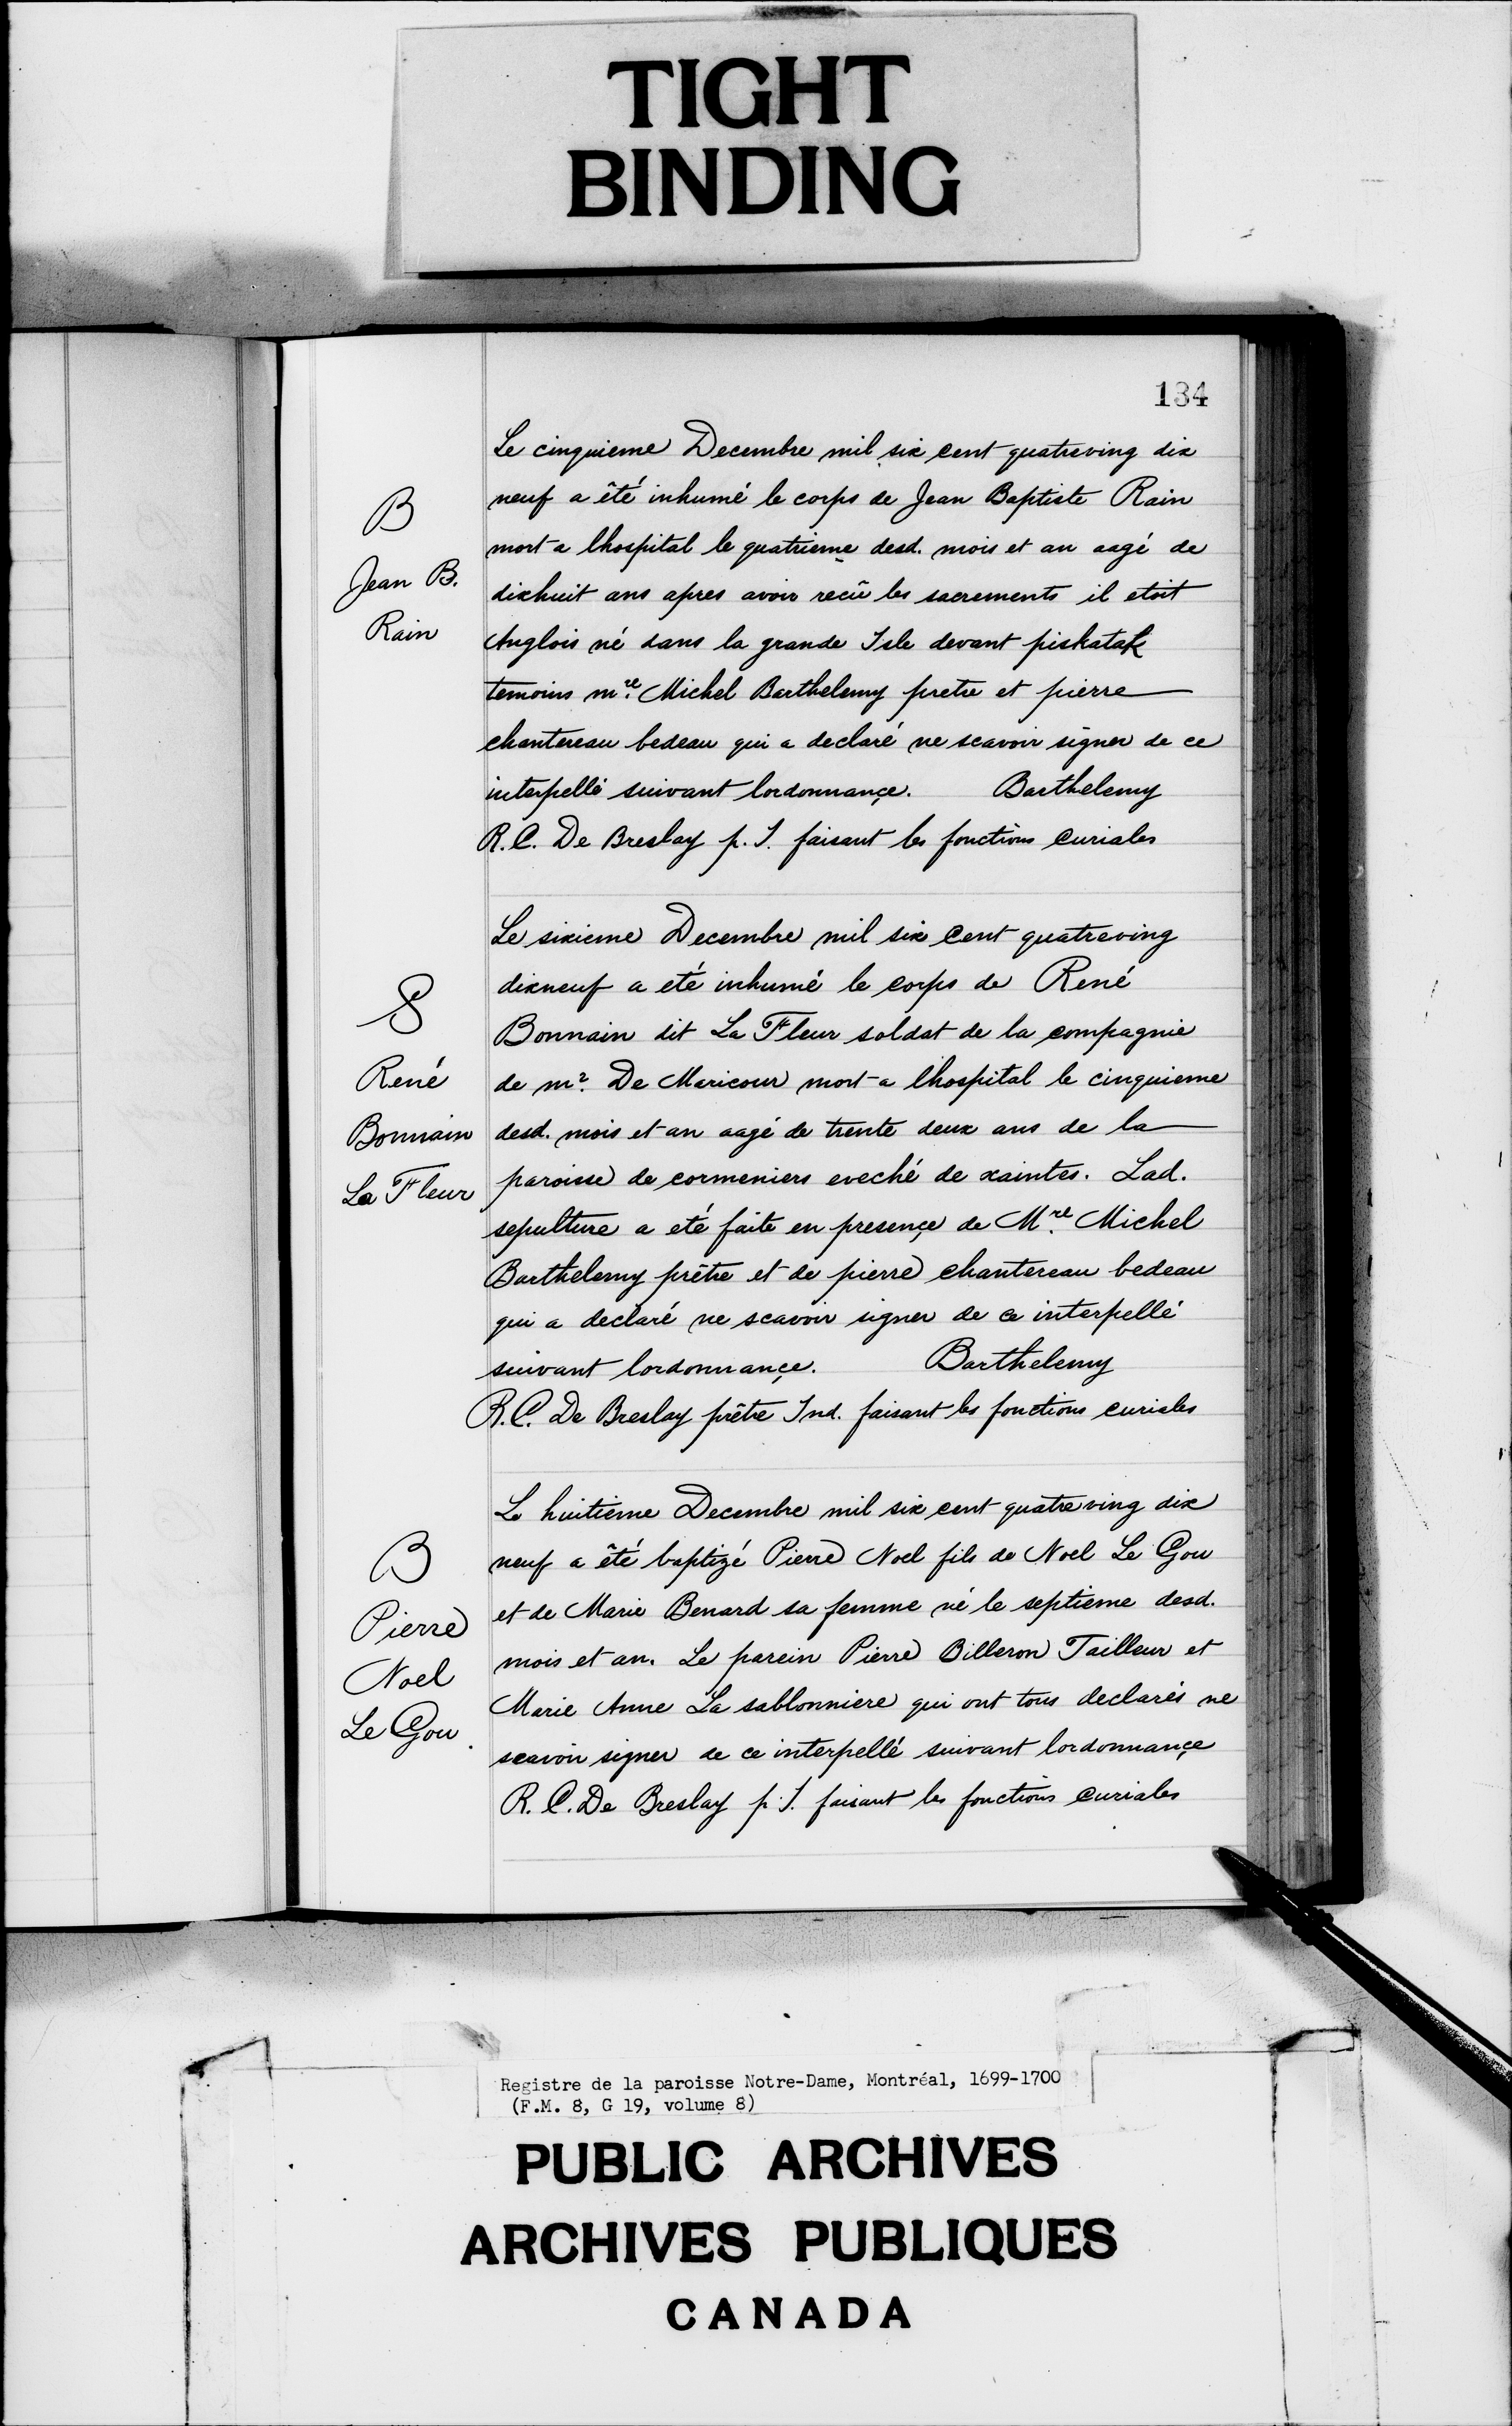 TIGHT
BINDING
134
Le cinquieme Decembre mil six cent quatreving dix
neuf a été inhumé le corps de Jean Baptiste Rain
mort a lhospital le quatrieme desd. mois et an aagé de
dixhuit ans apres avoir recû les sacrements il etoit
Anglois né dans la grande Isle devant piskatak
temoins mre. Michel Barthelemy pretre et pierre
chantereau bedeau qui a declaré ne scavoir signer de ce
interpellé suivant lordonnançe. Barthelemy
R. C. De Breslay p. I. faisant les fonctions Curiales
B
Jean B.
Rain
Le sixieme Decembre mil six Cent quatreving
dixneuf a eté inhumé le corps de René
Bonnain dit La Fleur soldat de la compagnie
de mr. De Maricour mort a lhospital le cinquieme
desd. mois et an aagé de trente deux ans de la
paroisse de cormeniers eveché de xaintes. Lad.
sepulture a eté faite en presençe de Mre. Michel
Barthelemy prêtre et de pierre chantereau bedeau
qui a declaré ne scavoir signer de ce interpellé
suivant lordonnançe. Barthelemy
R. C. De Breslay prêtre Ind. faisant les fonctions curiales
S
René
Bonnain
La Fleur
Le huitieme Decembre mil six cent quatreving dix
neuf a été baptizé Pierre Noel fils de Noel Le Gou
et de Marie Benard sa femme né le septieme desd.
mois et an. Le parein Pierre Billeron Tailleur et
Marie Anne La sablonniere qui ont tous declarés ne
scavoir signer de ce interpellé suivant lordonnançe
R. C. De Breslay p. I. faisant les fonctions Curiales
B
Pierre
Noel
Le Gou
Registre de la paroisse Notre-Dame, Montréal, 1699-1700
(F.M. 8, G 19, volume 8)
PUBLIC ARCHIVES
ARCHIVES PUBLIQUES
CANADA